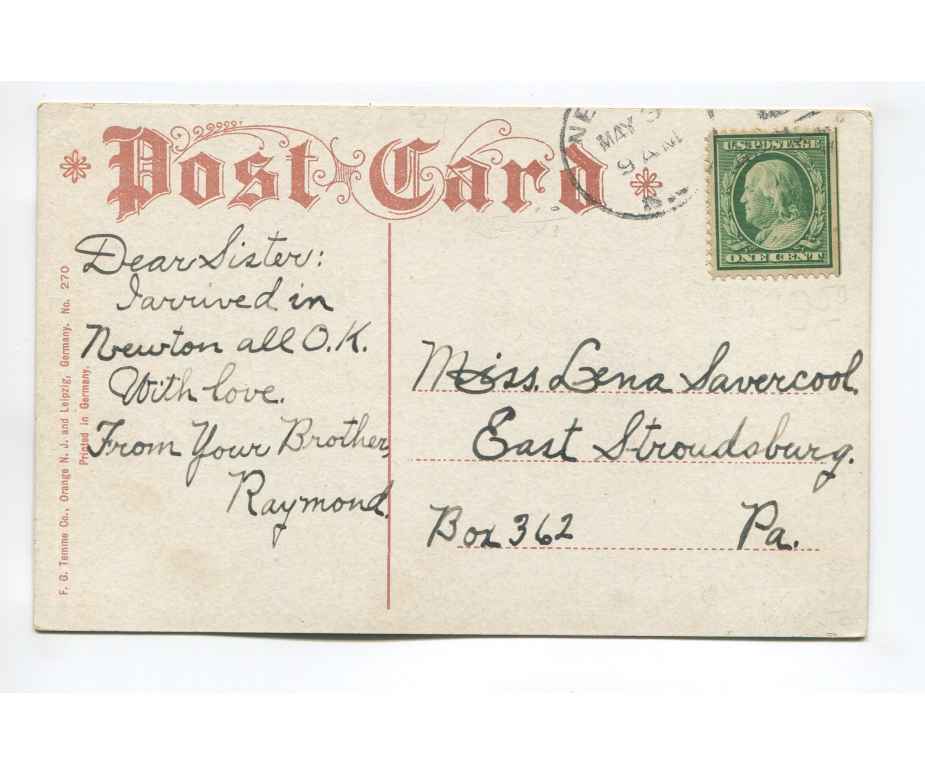 Post Card
NE
MAY 3
9 AM
U.S. POSTAGE
ONE CENT
Dear Sister:
I arrived in
Newton all O.K.
With love.
From Your Brother,
Raymond.
Miss. Lena Savercool.
East Stroudsburg.
Box 362 Pa.
F. G. Temme Co., Orange N. J. and Leipzig, Germany. No. 270
Printed in Germany.